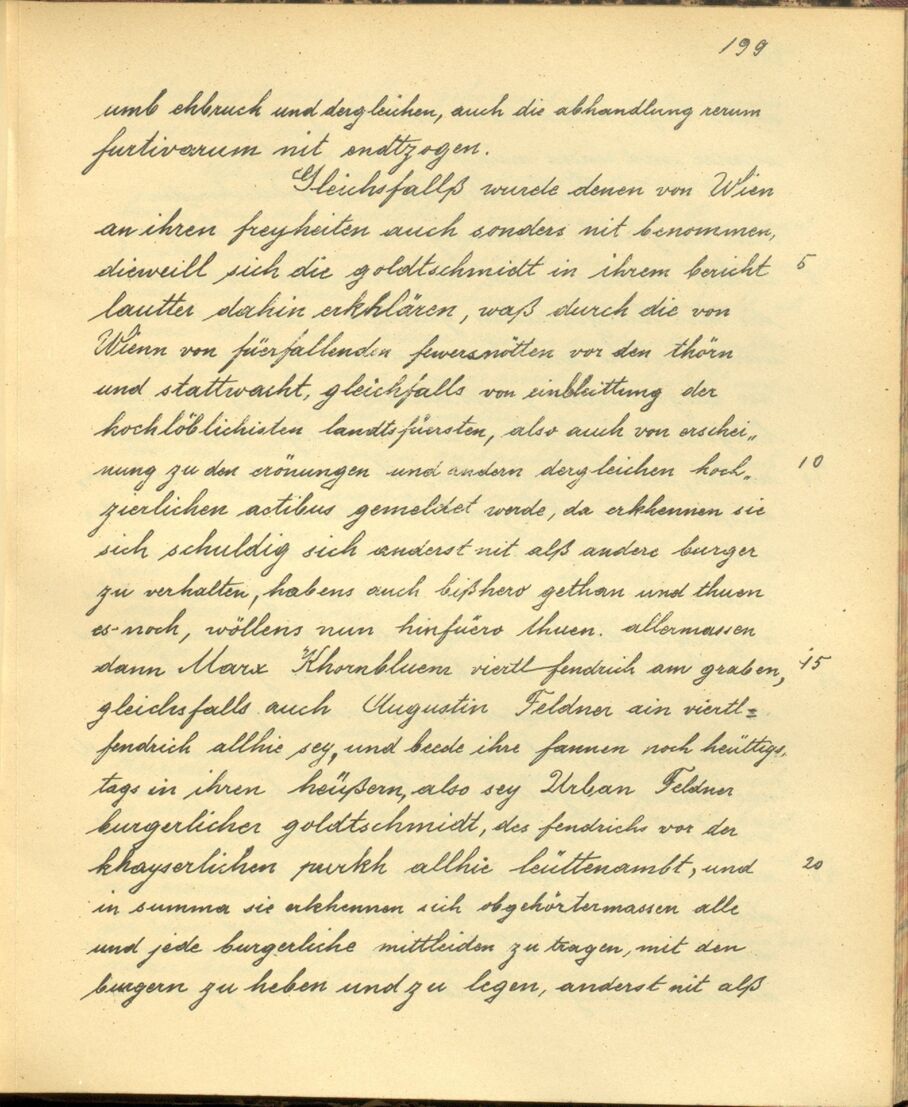 199
umb ehbruch und dergleichen, auch die abhandlung rerum
furtivarum nit endtzogen.
Gleichsfallß wurde denen von Wien
an ihren freyheiten auch sonders nit benommen,
dieweill sich die goldtschmidt in ihrem bericht 5
lautter dahin erkhlären, waß durch die von
Wienn von füerfallenden fewersnötten vor den thörn
und stattwacht, gleichfalls von einbleittung der
hochlöblichisten landtsfüersten, also auch von erschei„
nung zu den crönungen und andern dergleichen hoch„ 10
zierlichen actibus gemeldet werde, da erkhennen sie
sich schuldig sich anderst nit alß andere burger
zu verhalten, habens auch bißhero gethan und thuen
es noch, wöllens nun hinfüero thuen. allermassen
dann Marx Khornbluem viertl fendrich am graben, 15
gleichsfalls auch Augustin Feldner ain viertl=
fendrich allhie sey, und beede ihre fannen noch heüttigs,
tags in ihren heüßern, also sey Urban Feldner
burgerlicher goldtschmidt, des fendrichs vor der
khayserlichen purkh allhie leüttenambt, und 20
in summa sie erkhennen sich obgehörtermassen alle
und jede burgerliche mittleiden zu tragen, mit den
burgern zu heben und zu legen, anderst nit alß